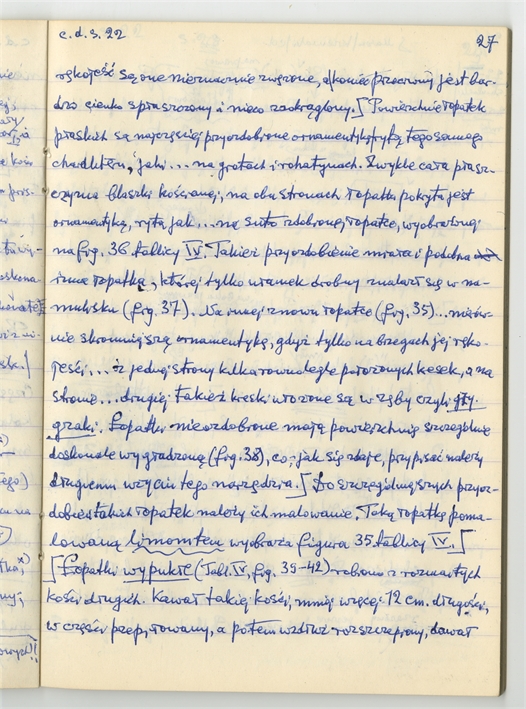 c.d.s. 22
27
rękojeść są one nieznacznie zwężone, a koniec przeciwny jest bar-
dzo cienko spłaszczony i nieco zaokrąglony.] Powierzchnie łopatek
płaskich są najczęściej przyozdobione ornamentyką rytą tego samego
charakteru, jak i... na grotach i rohatynach. Zwykle cała płasz-
czyzna blaszki kościanej, na obu stronach łopatki pokryta jest
ornamentyką, rytą jak... na suto zdobionej łopatce, wyobrażonej
na fig. 36 tablicy IV. Takież przyozdobienie miała i podobna
inna łopatka, której tylko ułamek drobny znalazł się w na-
mulisku (fig. 37). Na innej znowu łopatce (fig. 35)... mierów-
nie skromniejszą ornamentykę, gdyż tylko na brzegach jej ręko-
jeści... z jednej strony kilka równolegle położonych kresek, a na
stronie... drugiej takież kreski ułożone są w zęby czyli gzy-
gzaki. Łopatki nieozdobione mają powierzchnię szczególnie
doskonale wygładzoną (fig. 38), co, jak się zdaje, przypisać należy
długiemu użyciu tego narzędzia.] Do szczególniejszych przyoz-
dobień takich łopatek należy ich malowanie. Taką łopatkę poma-
lowaną limonitem wyobraża figura 35 tablicy IV.]
[Łopatki wypukłe (Tabl. IV, fig. 39-42) robiono z rozmaitych
kości długich. Kawał takiej kości, mniej więcej 12 cm. długości,
w części przepiłowany, a potem wzdłuż rozszczepiony, dawał